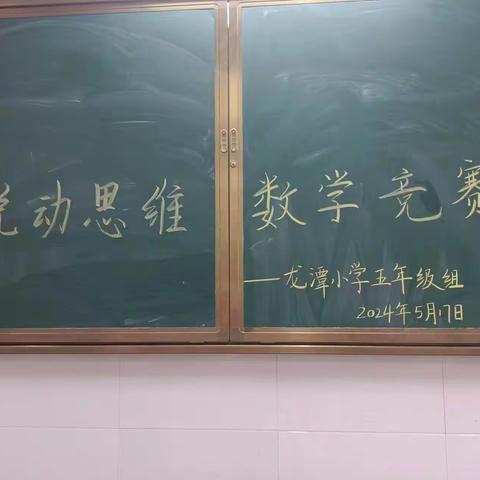 动思维 数学竞赛
——龙潭小学五年级组
2024年5月17日